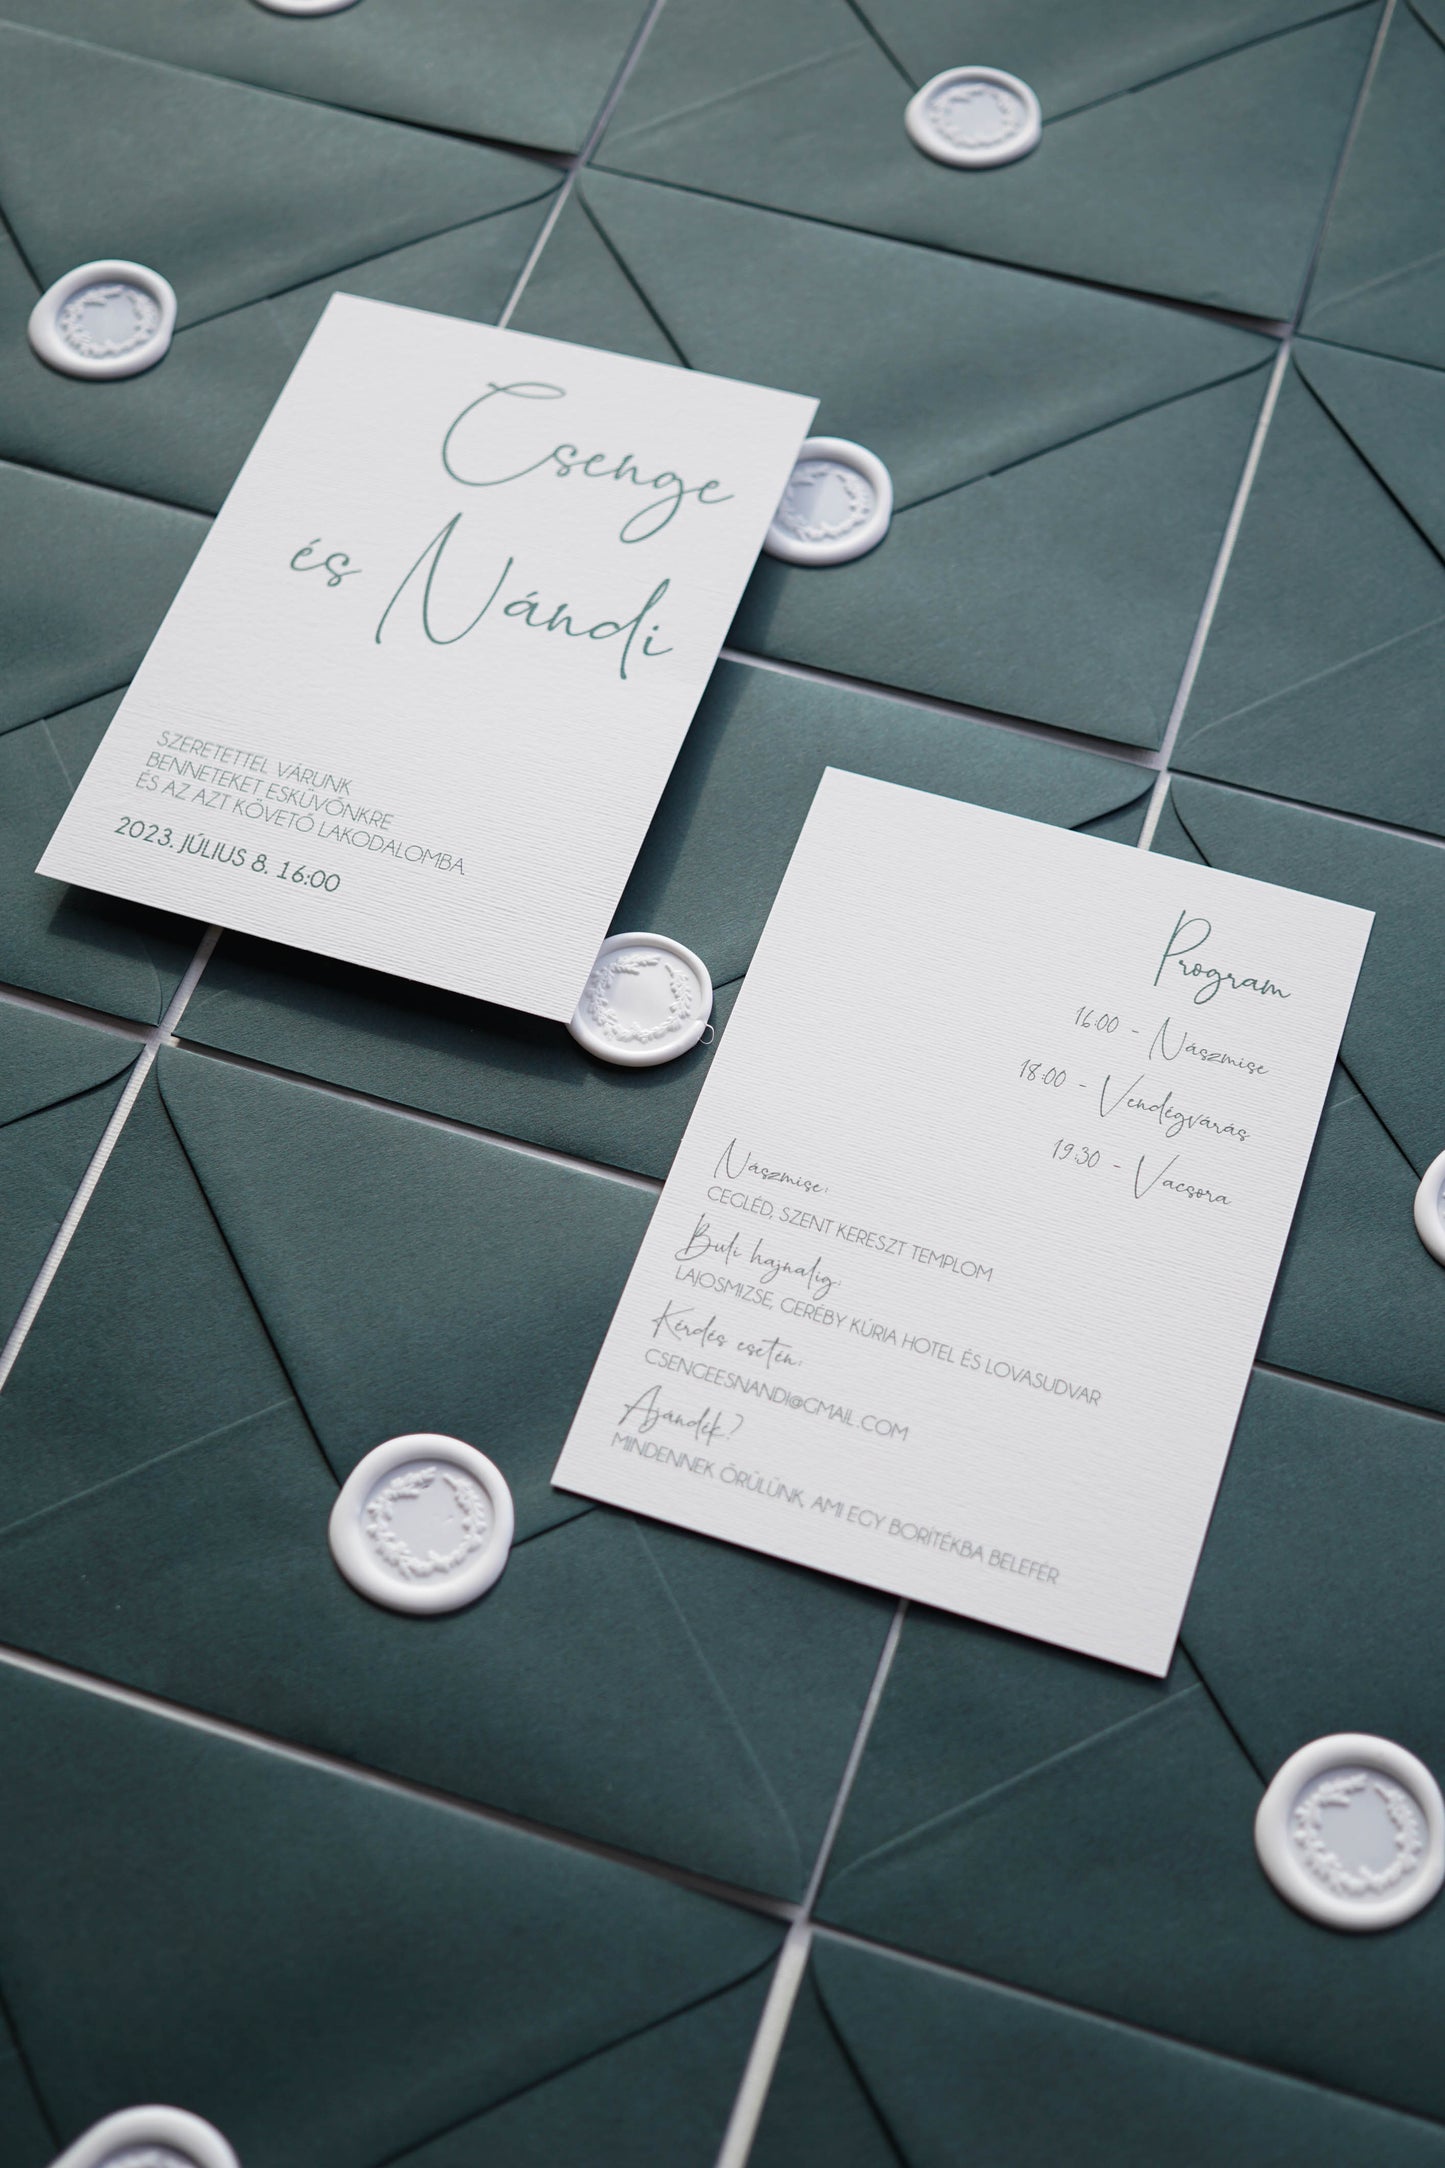 Csenge
és Nándi
SZERETETTEL VÁRUNK
BENNETEKET ESKÜVŐNKRE
ÉS AZ AZT KÖVETŐ LAKODALOMBA
2023. JÚLIUS 8. 16:00
Program
16:00 - Nászmise
18:00 - Vendégvárás
19:30 - Vacsora
Nászmise:
CEGLÉD, SZENT KERESZT TEMPLOM
Buli hajnalig:
LAJOSMIZSE, GERÉBY KÚRIA HOTEL ÉS LOVASUDVAR
Kérdés esetén:
CSENGEESNANDI@GMAIL.COM
Ajándék?
MINDENNEK ÖRÜLÜNK, AMI EGY BORÍTÉKBA BELEFÉR